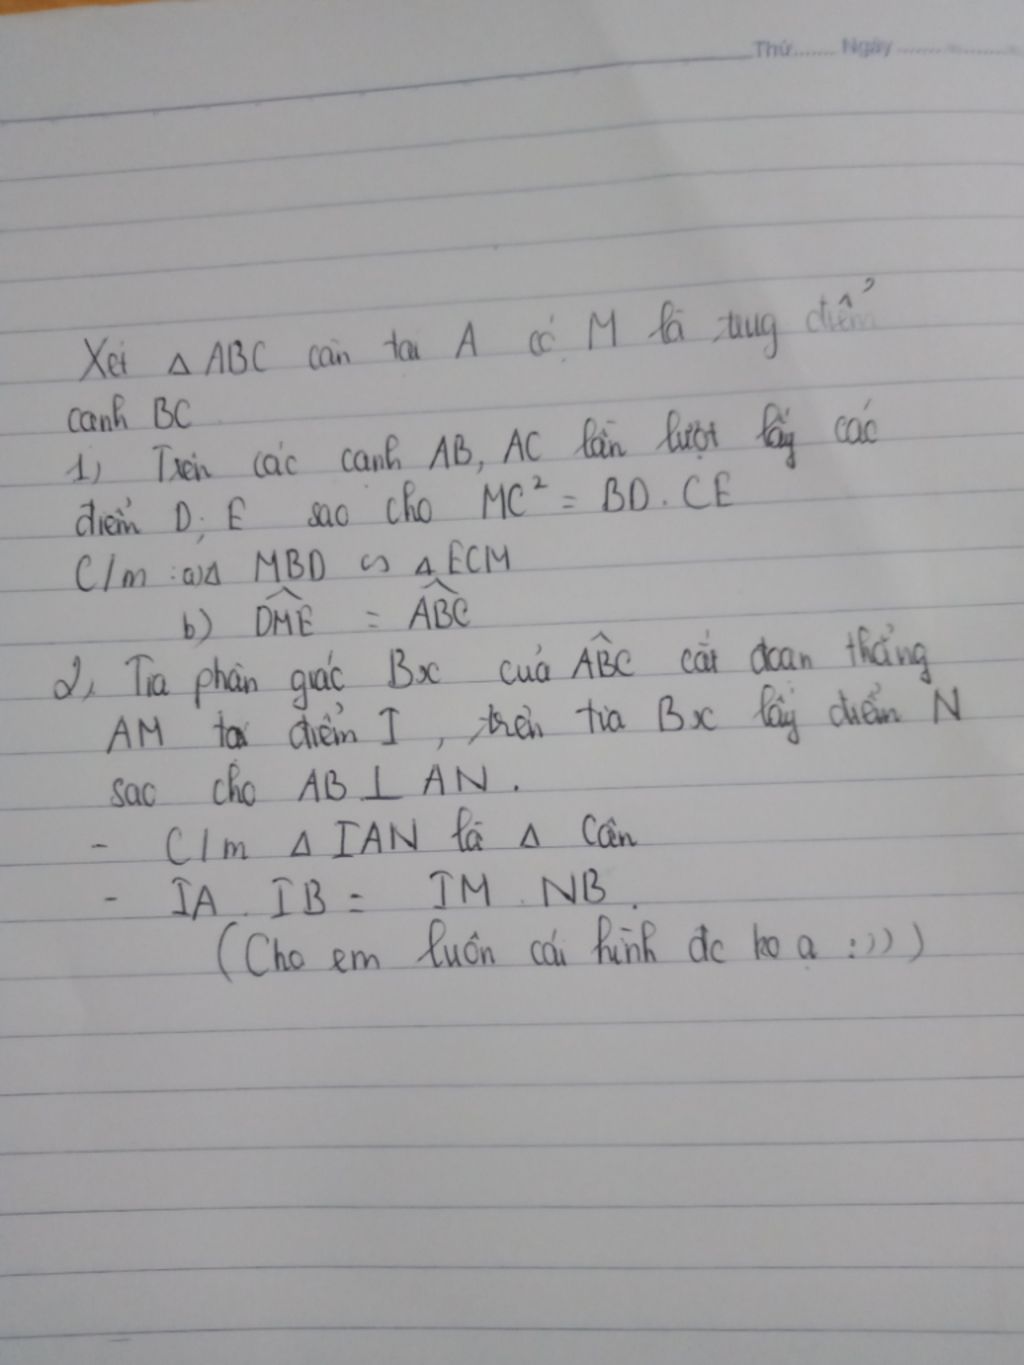 Thứ....... Ngày ................
Xét △ ABC cân tại A có M là trung điểm
cạnh BC
1) Trên các cạnh AB, AC lần lượt lấy các
điểm D, E sao cho MC² = BD. CE
C/m : a) △ MBD ∽ △ ECM
b) \widehat{DME} = \widehat{ABC}
2, Tia phân giác Bx của \widehat{ABC} cắt đoạn thẳng
AM tại điểm I, trên tia Bx lấy điểm N
sao cho AB ⊥ AN.
- C/m △ IAN là △ Cân
- IA. IB = IM. NB.
(Cho em luôn cái hình đc ko ạ :)))